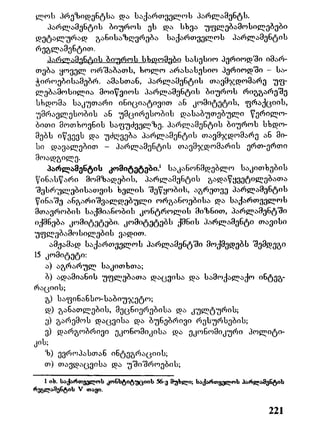 ლოს პრეზიდენტსა და საქართველოს პარლამენტს.
პარლამენტის ბიუროს ეს და სხვა უფლებამოსილებები
დეტალურად განისაზღვრება საქართველოს პარლამენტის
რეგლამენტით.
პარლამენტის ბიუროს სხდომები სასესიო პერიოდში იმარ-
თება ყოველ ორშაბათს, ხოლო არასასესიო პერიოდში - სა-
ჭიროებისამებრ. ამასთან, პარლამენტის თავმჯდომარე უფ-
ლებამოსილია მოიწვიოს პარლამენტის ბიუროს რიგგარეშე
სხდომა საკუთარი ინიციატივით ან კომიტეტის, ფრაქციის,
უმრავლესობის ან უმცირესობის დასაბუთებული წერილო-
ბითი მოთხოვნის საფუძველზე. პარლამენტის ბიუროს სხდო-
მებს იწვევს და უძღვება პარლამენტის თავმჯდომარე ან მი-
სი დავალებით – პარლამენტის თავმჯდომარის ერთ-ერთი
მოადგილე.
პარლამენტის კომიტეტები.¹ საკანონმდებლო საკითხების
წინასწარი მომზადების, პარლამენტის გადაწყვეტილებათა
შესრულებისათვის ხელის შეწყობის, აგრეთვე პარლამენტის
წინაშე ანგარიშვალდებული ორგანოებისა და საქართველოს
მთავრობის საქმიანობის კონტროლის მიზნით, პარლამენტში
იქმნება კომიტეტები. კომიტეტებს ქმნის პარლამენტი თავისი
უფლებამოსილების ვადით.
ამჟამად საქართველოს პარლამენტში მოქმედებს შემდეგი
15 კომიტეტი:
ა) აგრარულ საკითხთა;
ბ) ადამიანის უფლებათა დაცვისა და სამოქალაქო ინტეგ-
რაციის;
გ) საფინანსო-საბიუჯეტო;
დ) განათლების, მეცნიერებისა და კულტურის;
ე) გარემოს დაცვისა და ბუნებრივი რესურსების;
ვ) დარგობრივი ეკონომიკისა და ეკონომიკური პოლიტი-
კის;
ზ) ევროპასთან ინტეგრაციის;
თ) თავდაცვისა და უშიშროების;
1 იხ. საქართველოს კონსტიტუციის 56-ე მუხლი; საქართველოს პარლამენტის
რეგლამენტის V თავი.
221